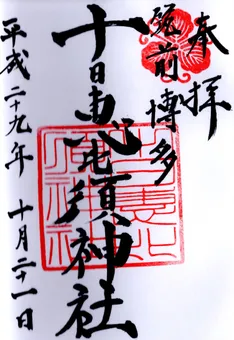 奉拝
筑前博多
十日恵比須神社
平成二十九年 十月二十一日